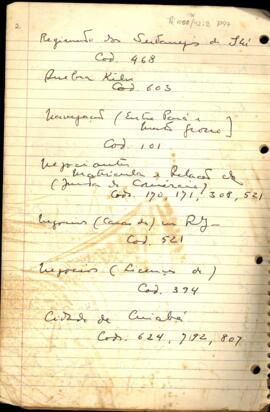 2
Regimento dos Sertanejos de
Cod. 468
Quebra Kilos
Cod. 603
Navegação (Entre Pará e
Mato Grosso)
Cod. 101
Negociantes
Matricula e Relação de
(Junta do Comércio)
Cods. 170, 171, 308, 521
Negocios (Casas de) no RJ
Cod. 521
Negocios (Licenças de)
Cod. 394
Cidade de Cuiabá
Cods. 624, 792, 807